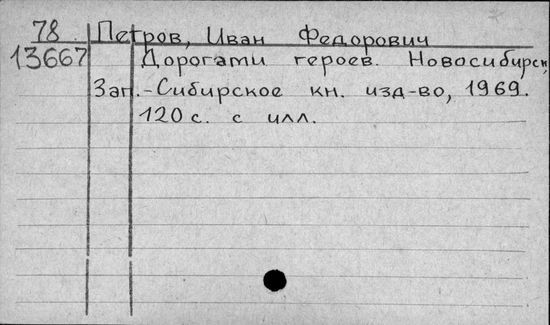 78 Петров, Иван Федорович
13667 Дорогами героев. Новосибирск,
Зап.-Сибирское кн. изд-во, 1969.
120 с. с илл.